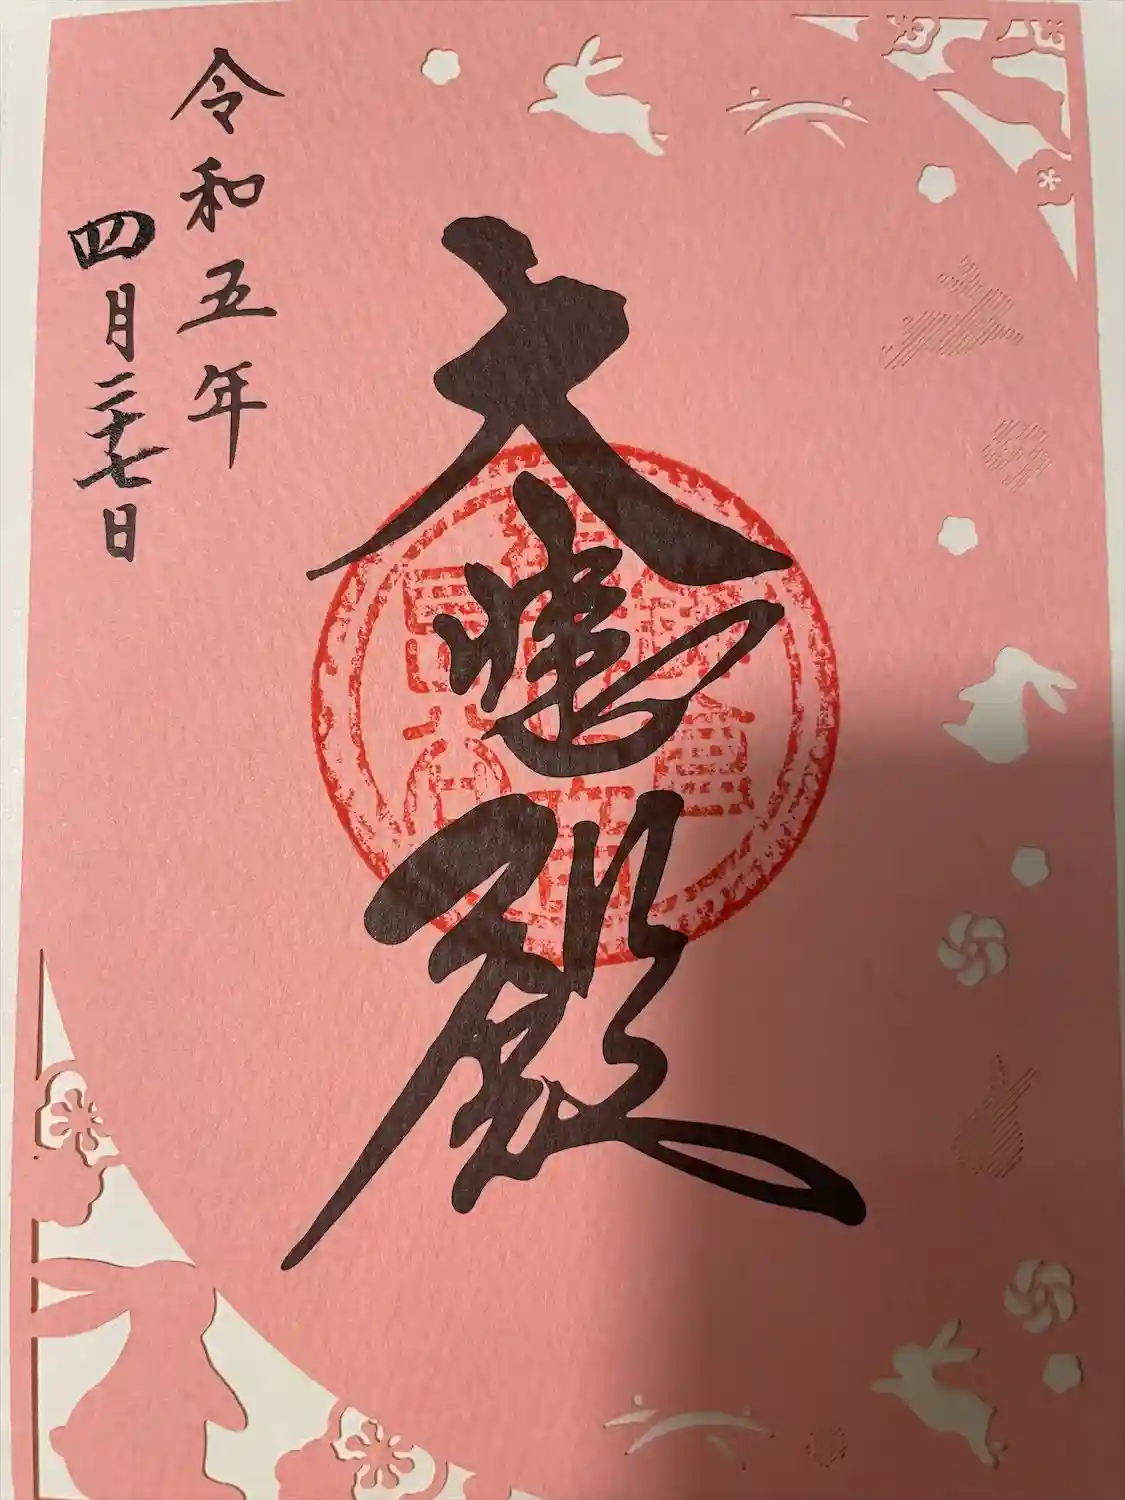 大悲殿
令和五年
四月二十七日